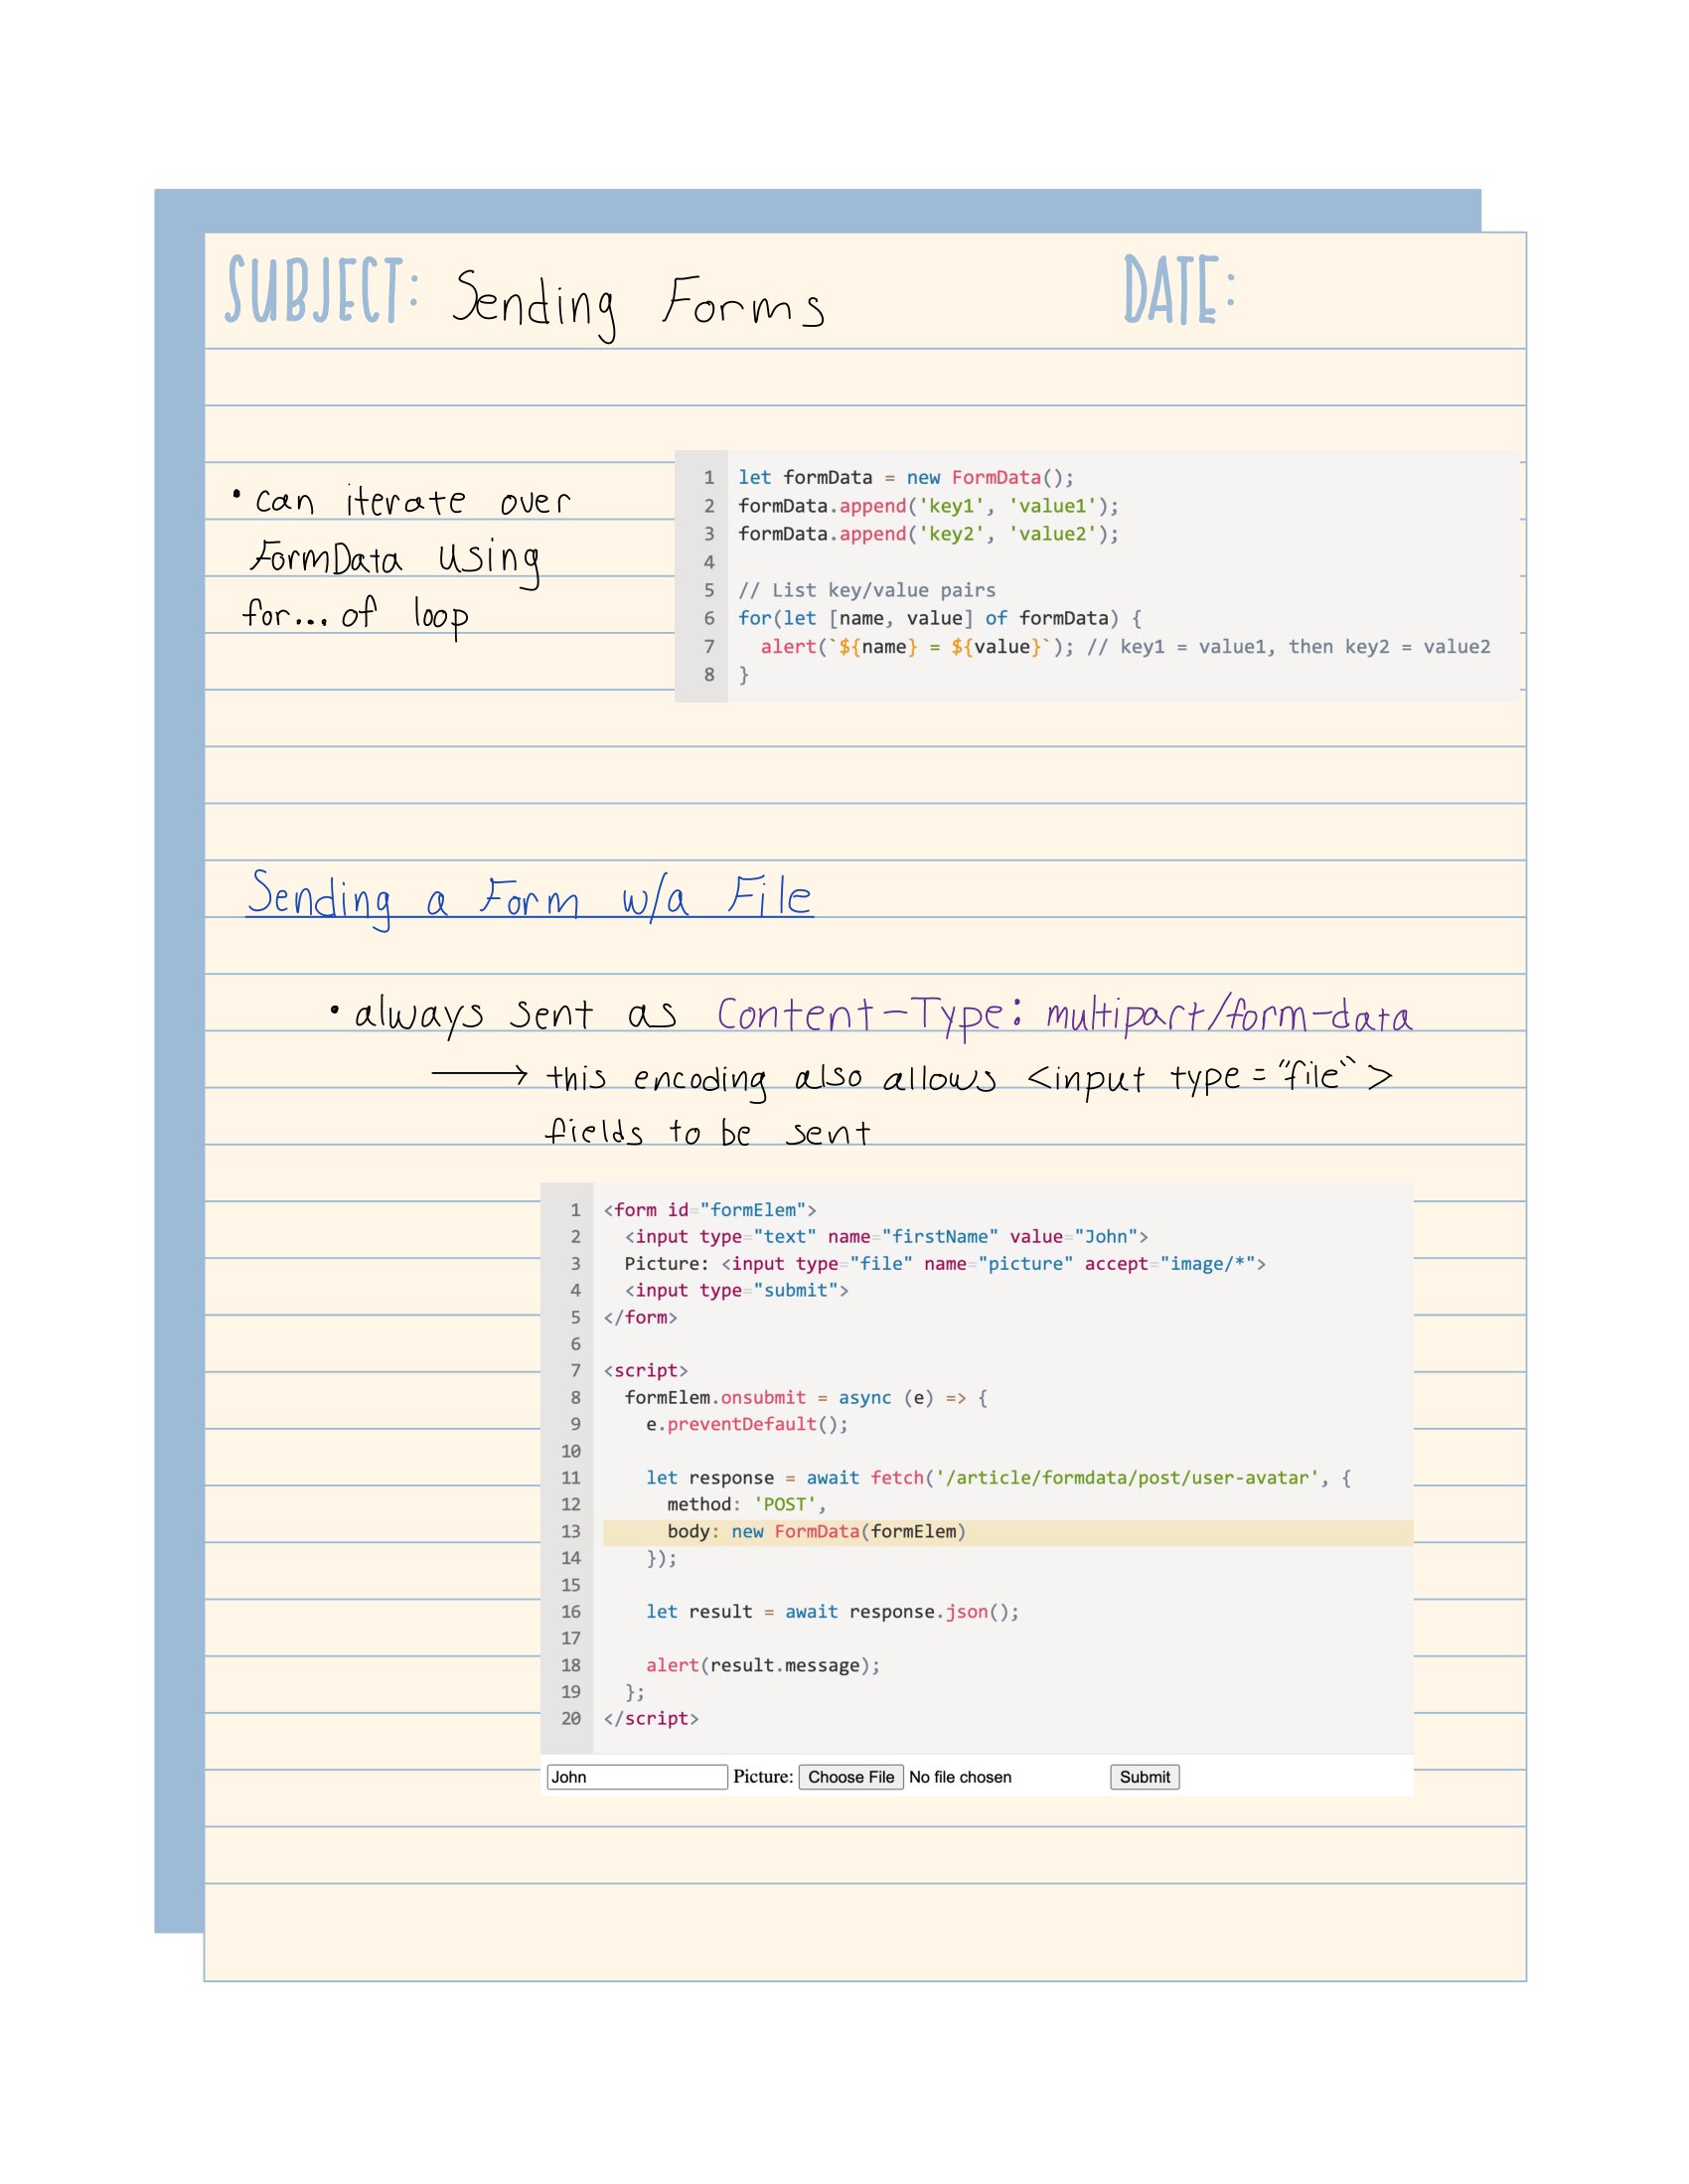 SUBJECT: Sending Forms DATE:
• can iterate over
FormData using
for... of loop
1 let formData = new FormData();
2 formData.append('key1', 'value1');
3 formData.append('key2', 'value2');
4
5 // List key/value pairs
6 for(let [name, value] of formData) {
7   alert(`${name} = ${value}`); // key1 = value1, then key2 = value2
8 }
Sending a Form w/a File
• always sent as Content-Type: multipart/form-data
→ this encoding also allows <input type="file">
fields to be sent
1 <form id="formElem">
2   <input type="text" name="firstName" value="John">
3   Picture: <input type="file" name="picture" accept="image/*">
4   <input type="submit">
5 </form>
6
7 <script>
8   formElem.onsubmit = async (e) => {
9     e.preventDefault();
10
11     let response = await fetch('/article/formdata/post/user-avatar', {
12       method: 'POST',
13       body: new FormData(formElem)
14     });
15
16     let result = await response.json();
17
18     alert(result.message);
19   };
20 </script>
John Picture: Choose File No file chosen Submit